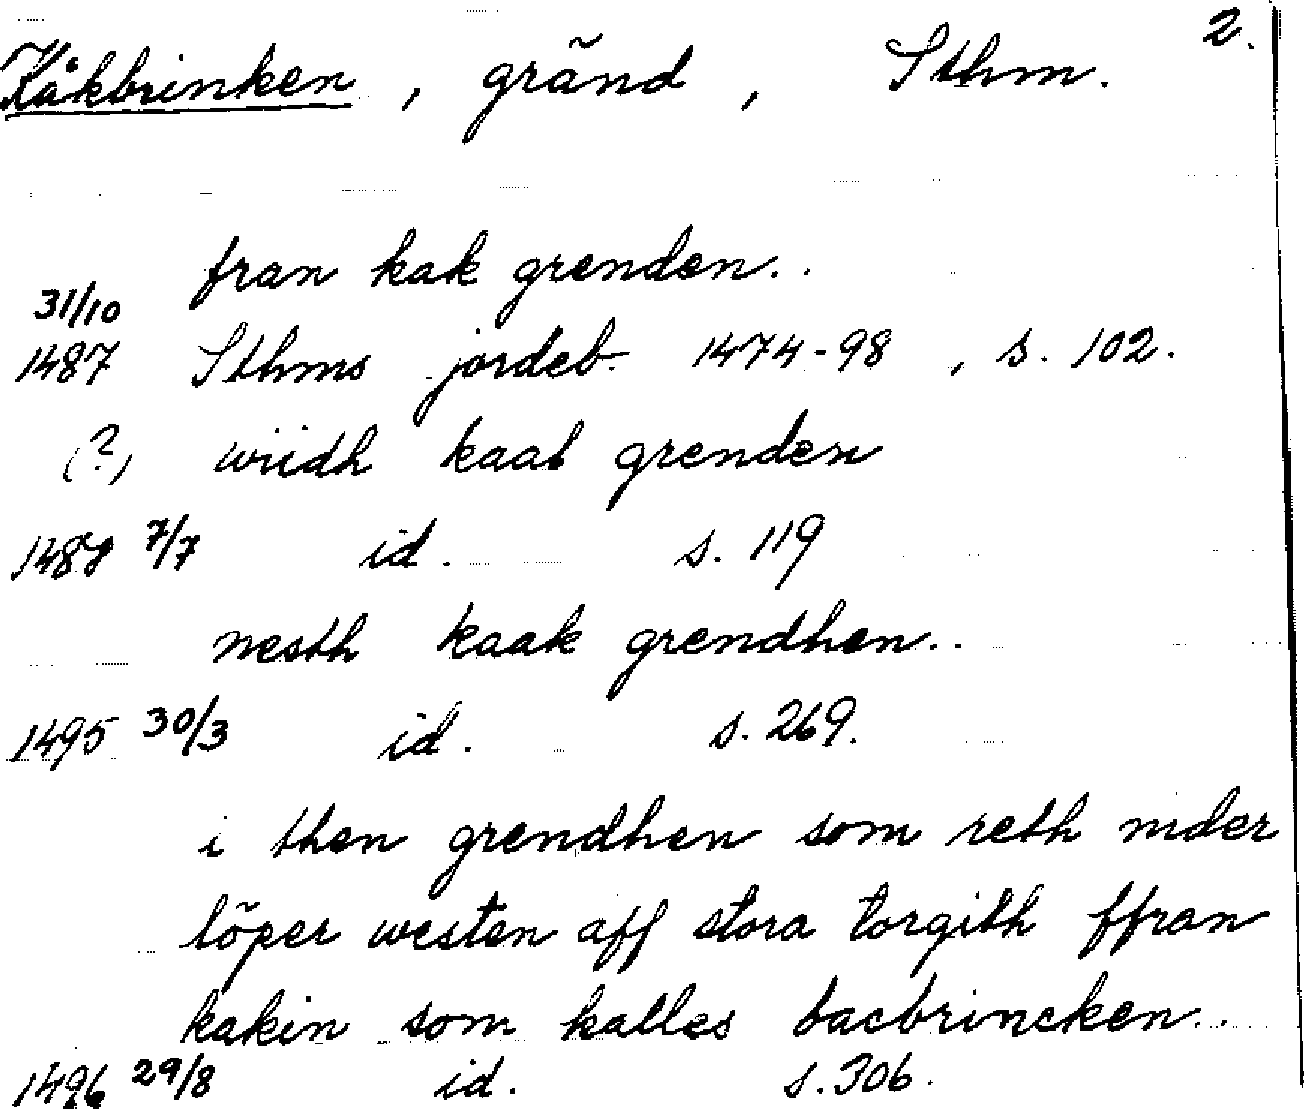 2.
Kåkbrinken, gränd, Sthm.
fran kak grenden..
31/10
1487 Sthms jordeb. 1474-98, s. 102.
(?) wiidh kaal grenden
1488 7/7 id. s. 119
nesth kaak grendhen..
1495 30/3 id. s. 269.
i then grendhen som reth nider
löper westen aff stora torgith ffran
kakin som kalles bacbrincken..
1496 29/8 id. s. 306.